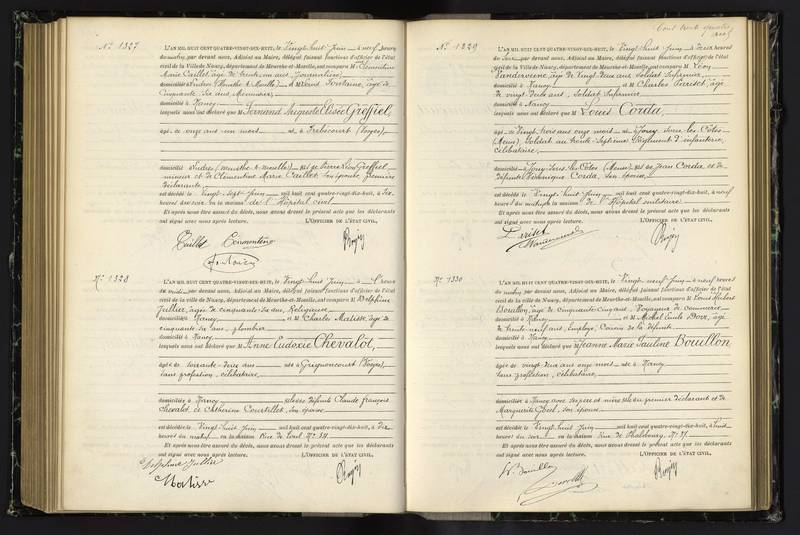 N° 1327
L'AN MIL HUIT CENT QUATRE-VINGT-DIX-HUIT, le Vingt huit Juin à neuf heures
du matin, par devant nous, Adjoint au Maire, délégué faisant fonctions d'officier de l'état
civil de la Ville de Nancy, département de Meurthe-et-Moselle, ont comparu Me Clémentine
Marie Caillet, âgée de trente un ans, Journalière,
domiciliée à Ludres (Meurthe & Moselle) et M Fontaine, âgé de
Cinquante six ans, Menuisier,
domicilié à Nancy
lesquels nous ont déclaré que M Fernand Auguste Elisée Greffiel,
âgé de onze ans un mois né à Trebécourt (Vosges),
domicilié Ludres (Meurthe & Moselle) fils de Pierre Léon Greffiel,
mineur et de Clémentine Marie Caillet, son épouse, première
déclarante,
est décédé le vingt-sept Juin mil huit cent quatre-vingt-dix-huit, à six
heures du soir en la maison de l'Hôpital civil
Et après nous être assuré du décès, nous avons dressé le présent acte que les déclarants
ont signé avec nous après lecture. L'OFFICIER DE L'ÉTAT CIVIL,
Caillet Clémentine
Fontaine
N° 1328
L'AN MIL HUIT CENT QUATRE-VINGT-DIX-HUIT, le Vingt huit Juin à
par devant nous, Adjoint au Maire, délégué faisant fonctions d'officier de l'état
civil de la ville de Nancy, département de Meurthe-et-Moselle, ont comparu Me Delphine
Jullier, âgée de cinquante six ans, Religieuse
domiciliée à Nancy et M Charles Matisse, âgé de
cinquante six ans, plombier
domicilié à Nancy
lesquels nous ont déclaré que M Anne Eudoxie Chevalot,
âgée de soixante-deux ans née à Grignoncourt (Vosges),
sans profession, célibataire,
domiciliée à Nancy fille des défunts Claude François
Chevalot, et Catherine Courtillet, son épouse
est décédée le Vingt huit Juin mil huit cent quatre-vingt-dix-huit, à
heures du matin en la maison Rue de Toul N° 34
Et après nous être assuré du décès, nous avons dressé le présent acte que les déclarants
ont signé avec nous après lecture. L'OFFICIER DE L'ÉTAT CIVIL,
Delphine Jullier
Matisse
N° 1329
L'AN MIL HUIT CENT QUATRE-VINGT-DIX-HUIT, le Vingt huit Juin à deux heures
du soir, par devant nous, Adjoint au Maire, délégué faisant fonctions d'officier de l'état
civil de la Ville de Nancy, département de Meurthe-et-Moselle, ont comparu M Léon
Vandervenne, âgé de Vingt deux ans, Soldat Infirmier,
domicilié à Nancy et M Charles Periset, âgé
de vingt deux ans, Soldat Infirmier
domicilié à Nancy
lesquels nous ont déclaré que M Louis Corda,
âgé de Vingt trois ans onze mois né à Jouy sous les Côtes
(Meuse), Soldat au trente-septième Régiment d'infanterie,
célibataire,
domicilié Jouy sous les Côtes (Meuse), fils de Jean Corda, et de
défunte Véronique Corda, son épouse
est décédé le Vingt huit Juin mil huit cent quatre-vingt-dix-huit, à neuf
heures du matin en la maison de l'Hôpital militaire
Et après nous être assuré du décès, nous avons dressé le présent acte que les déclarants
ont signé avec nous après lecture. L'OFFICIER DE L'ÉTAT CIVIL,
Periset
N° 1330
L'AN MIL HUIT CENT QUATRE-VINGT-DIX-HUIT, le Vingt neuf Juin à neuf heures
du matin, par devant nous, Adjoint au Maire, délégué faisant fonctions d'officier de l'état
civil de la ville de Nancy, département de Meurthe-et-Moselle, ont comparu M Louis Hubert
Bouillon, âgé de cinquante-cinq ans, Voyageur de commerce
domicilié à Nancy et M Michel Emile
de trente neuf ans, Employé,
domicilié à Nancy
lesquels nous ont déclaré que M Jeanne Marie Pauline Bouillon
âgée de vingt deux ans onze mois née à Nancy
sans profession, célibataire,
domiciliée à Nancy avec ses père et mère fille du premier déclarant et de
Marguerite Gosel, son épouse
est décédée le Vingt huit Juin mil huit cent quatre-vingt-dix-huit, à huit
heures du soir en la maison Rue de Phalsbourg, N° 37
Et après nous être assuré du décès, nous avons dressé le présent acte que les déclarants
ont signé avec nous après lecture. L'OFFICIER DE L'ÉTAT CIVIL,
Bouillon